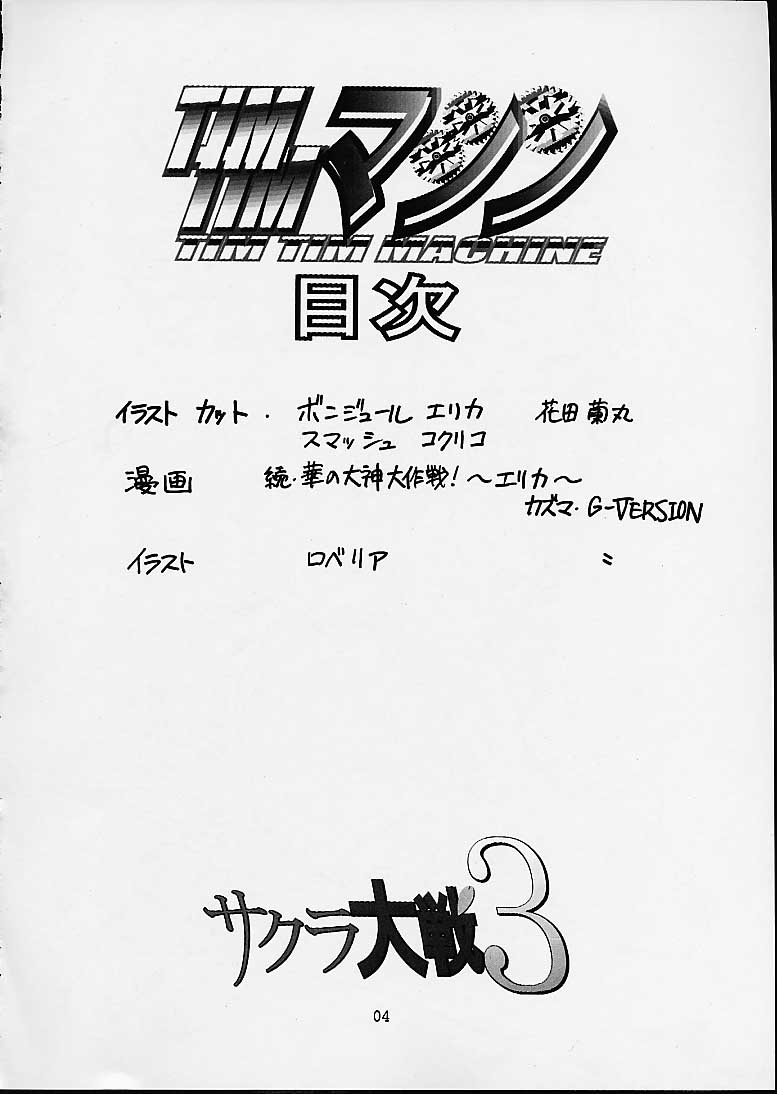 TIM-マシン
TIM
TIM TIM MACHINE
目次
イラスト カット・ ボンジュール エリカ 花田 蘭丸
スマッシュ コクリコ
漫画 続・華の大神大作戦！〜エリカ〜
カズマ・G-VERSION
イラスト ロベリア 〃
サクラ大戦3
04